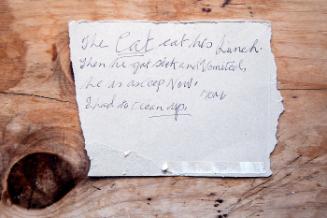 The Cat eat his Lunch.
Then he got sick and Vomited,
he is asleep Now.
I had to clean up.